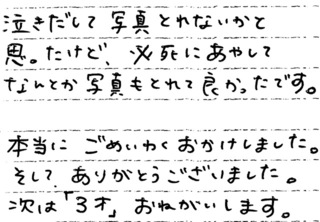 泣きだして写真とれないかと
思。たけど、必死にあやして
なんとか写真もとれて良かったです。
本当にごめいわくおかけしました。
そしてありがとうございました。
次は「3才」おねがいします。